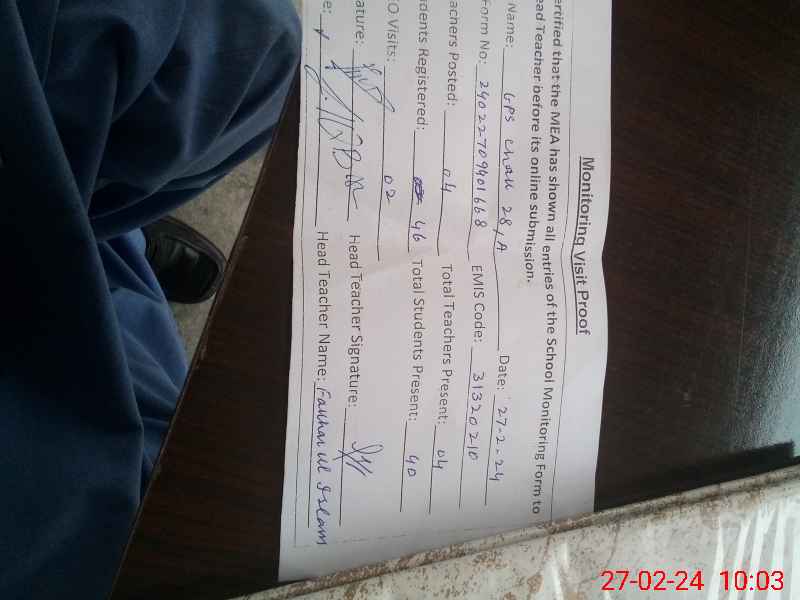 Monitoring Visit Proof
ertified that the MEA has shown all entries of the School Monitoring Form to
ead Teacher before its online submission.
Name: GPS Chak 28/A Date: 27-2-24
Form No: 24022709401668 EMIS Code: 31320210
achers Posted: 04 Total Teachers Present: 04
udents Registered: 46 Total Students Present: 40
O Visits: 02
ature: Head Teacher Signature:
e: Head Teacher Name: Fakhar ul Islam
27-02-24 10:03